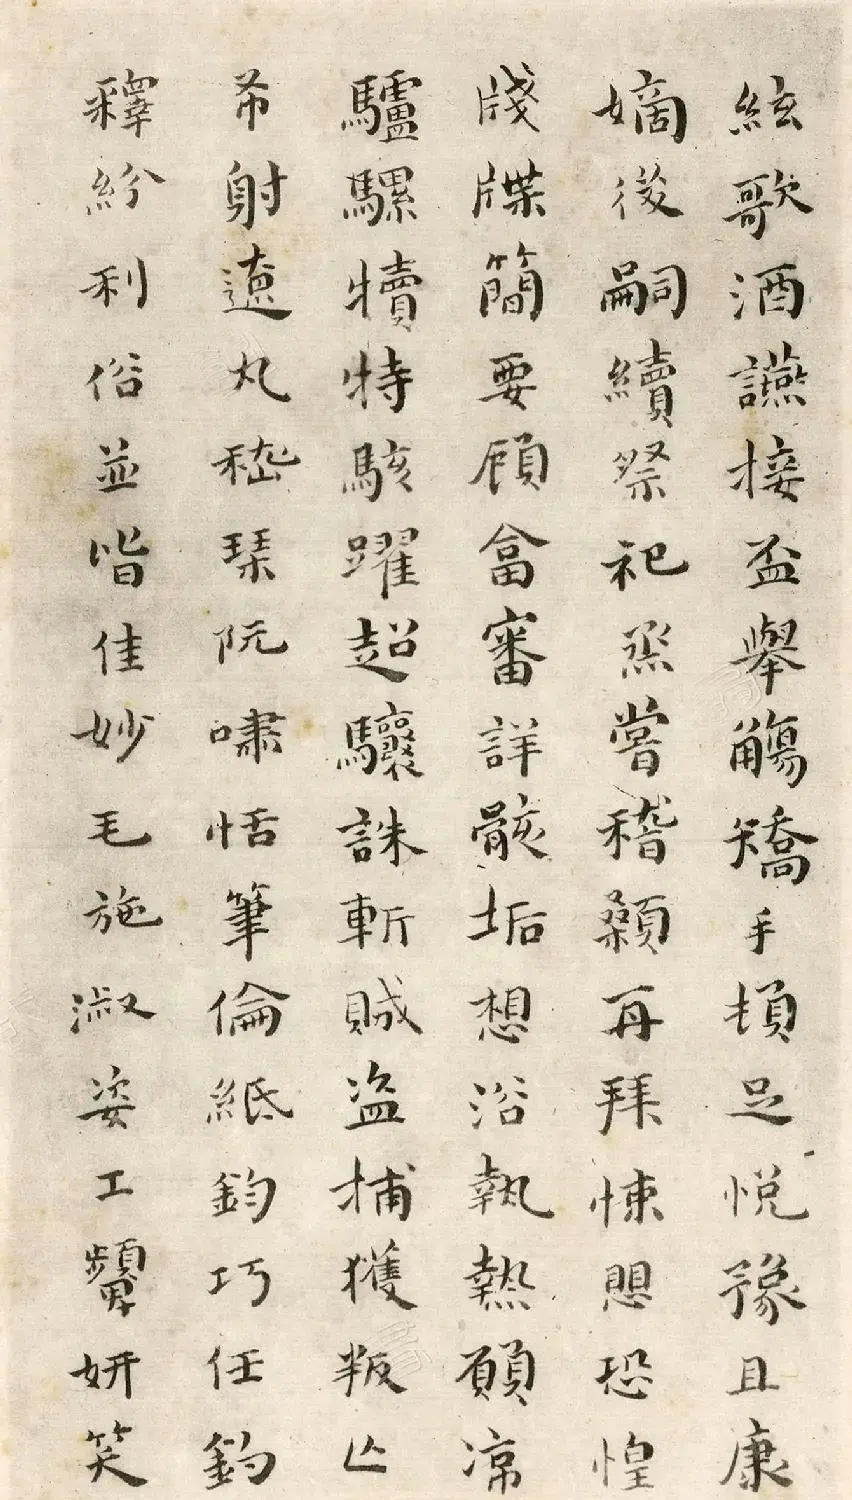 絃歌酒讌接盃舉觴矯手頓足悅豫且康
嫡後嗣續祭祀烝嘗稽顙再拜悚思恐惶
牋牒簡要顧畣審詳骸垢想浴執熱願涼
驢騾犢特駭躍超驤誅斬賊盜捕獲叛亡
布射遼丸嵇琴阮嘯恬筆倫紙鈞巧任釣
釋紛利俗並皆佳妙毛施淑姿工顰妍笑